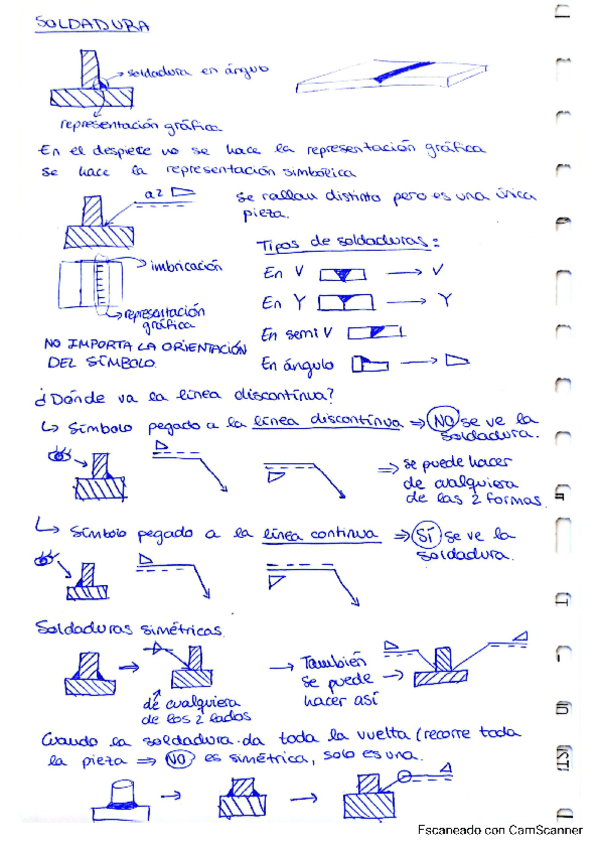 SOLDADURA
soldadura en ángulo
representación gráfica
En el despiece no se hace la representación gráfica
se hace la representación simbólica
a2
se rallan distinto pero es una única
pieza.
Tipos de soldaduras:
imbricación
En V → V
representación
gráfica
En Y → Y
En semi V
NO IMPORTA LA ORIENTACIÓN
DEL SÍMBOLO.
En ángulo →
¿Dónde va la línea discontinua?
↳ Símbolo pegado a la línea discontinua ⇒ NO se ve la
soldadura.
⇒ se puede hacer
de cualquiera
de las 2 formas.
↳ Símbolo pegado a la línea continua ⇒ SÍ se ve la
soldadura.
Soldaduras simétricas.
→ También
se puede →
hacer así
de cualquiera
de los 2 lados
Cuando la soldadura da toda la vuelta (recorre toda
la pieza ⇒ NO es simétrica, solo es una.
Escaneado con CamScanner